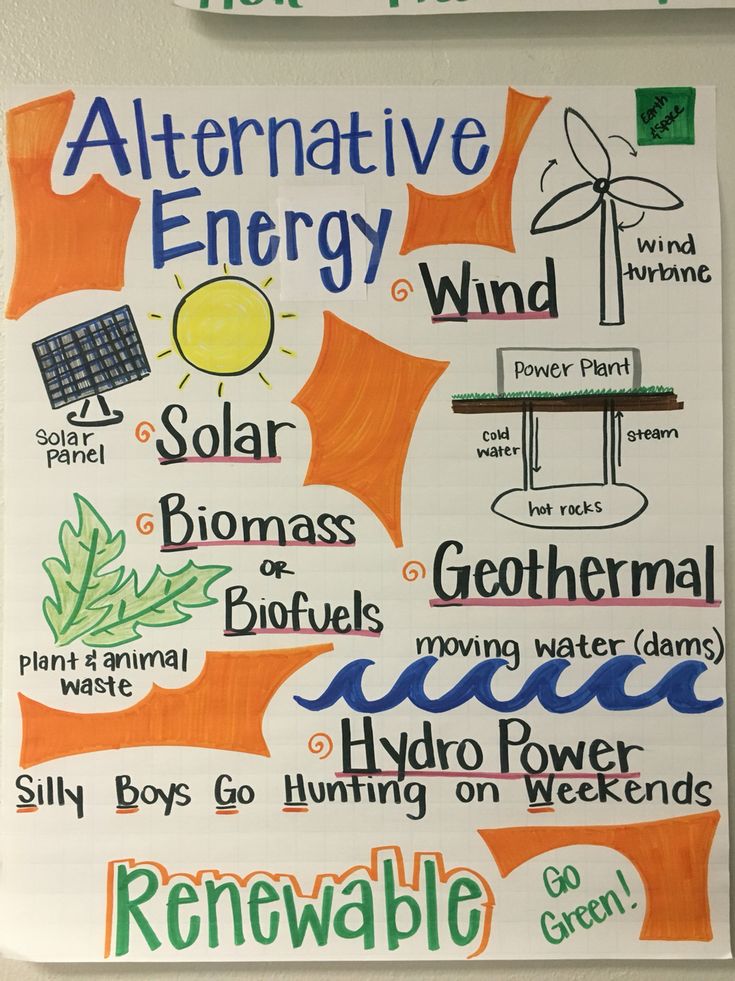 Alternative
Energy
Earth
& Space
wind
turbine
Wind
Solar
panel
Solar
Power Plant
cold
water
steam
hot rocks
Biomass
or
Biofuels
Geothermal
plant & animal
waste
moving water (dams)
Hydro Power
Silly Boys Go Hunting on Weekends
Renewable
Go
Green!